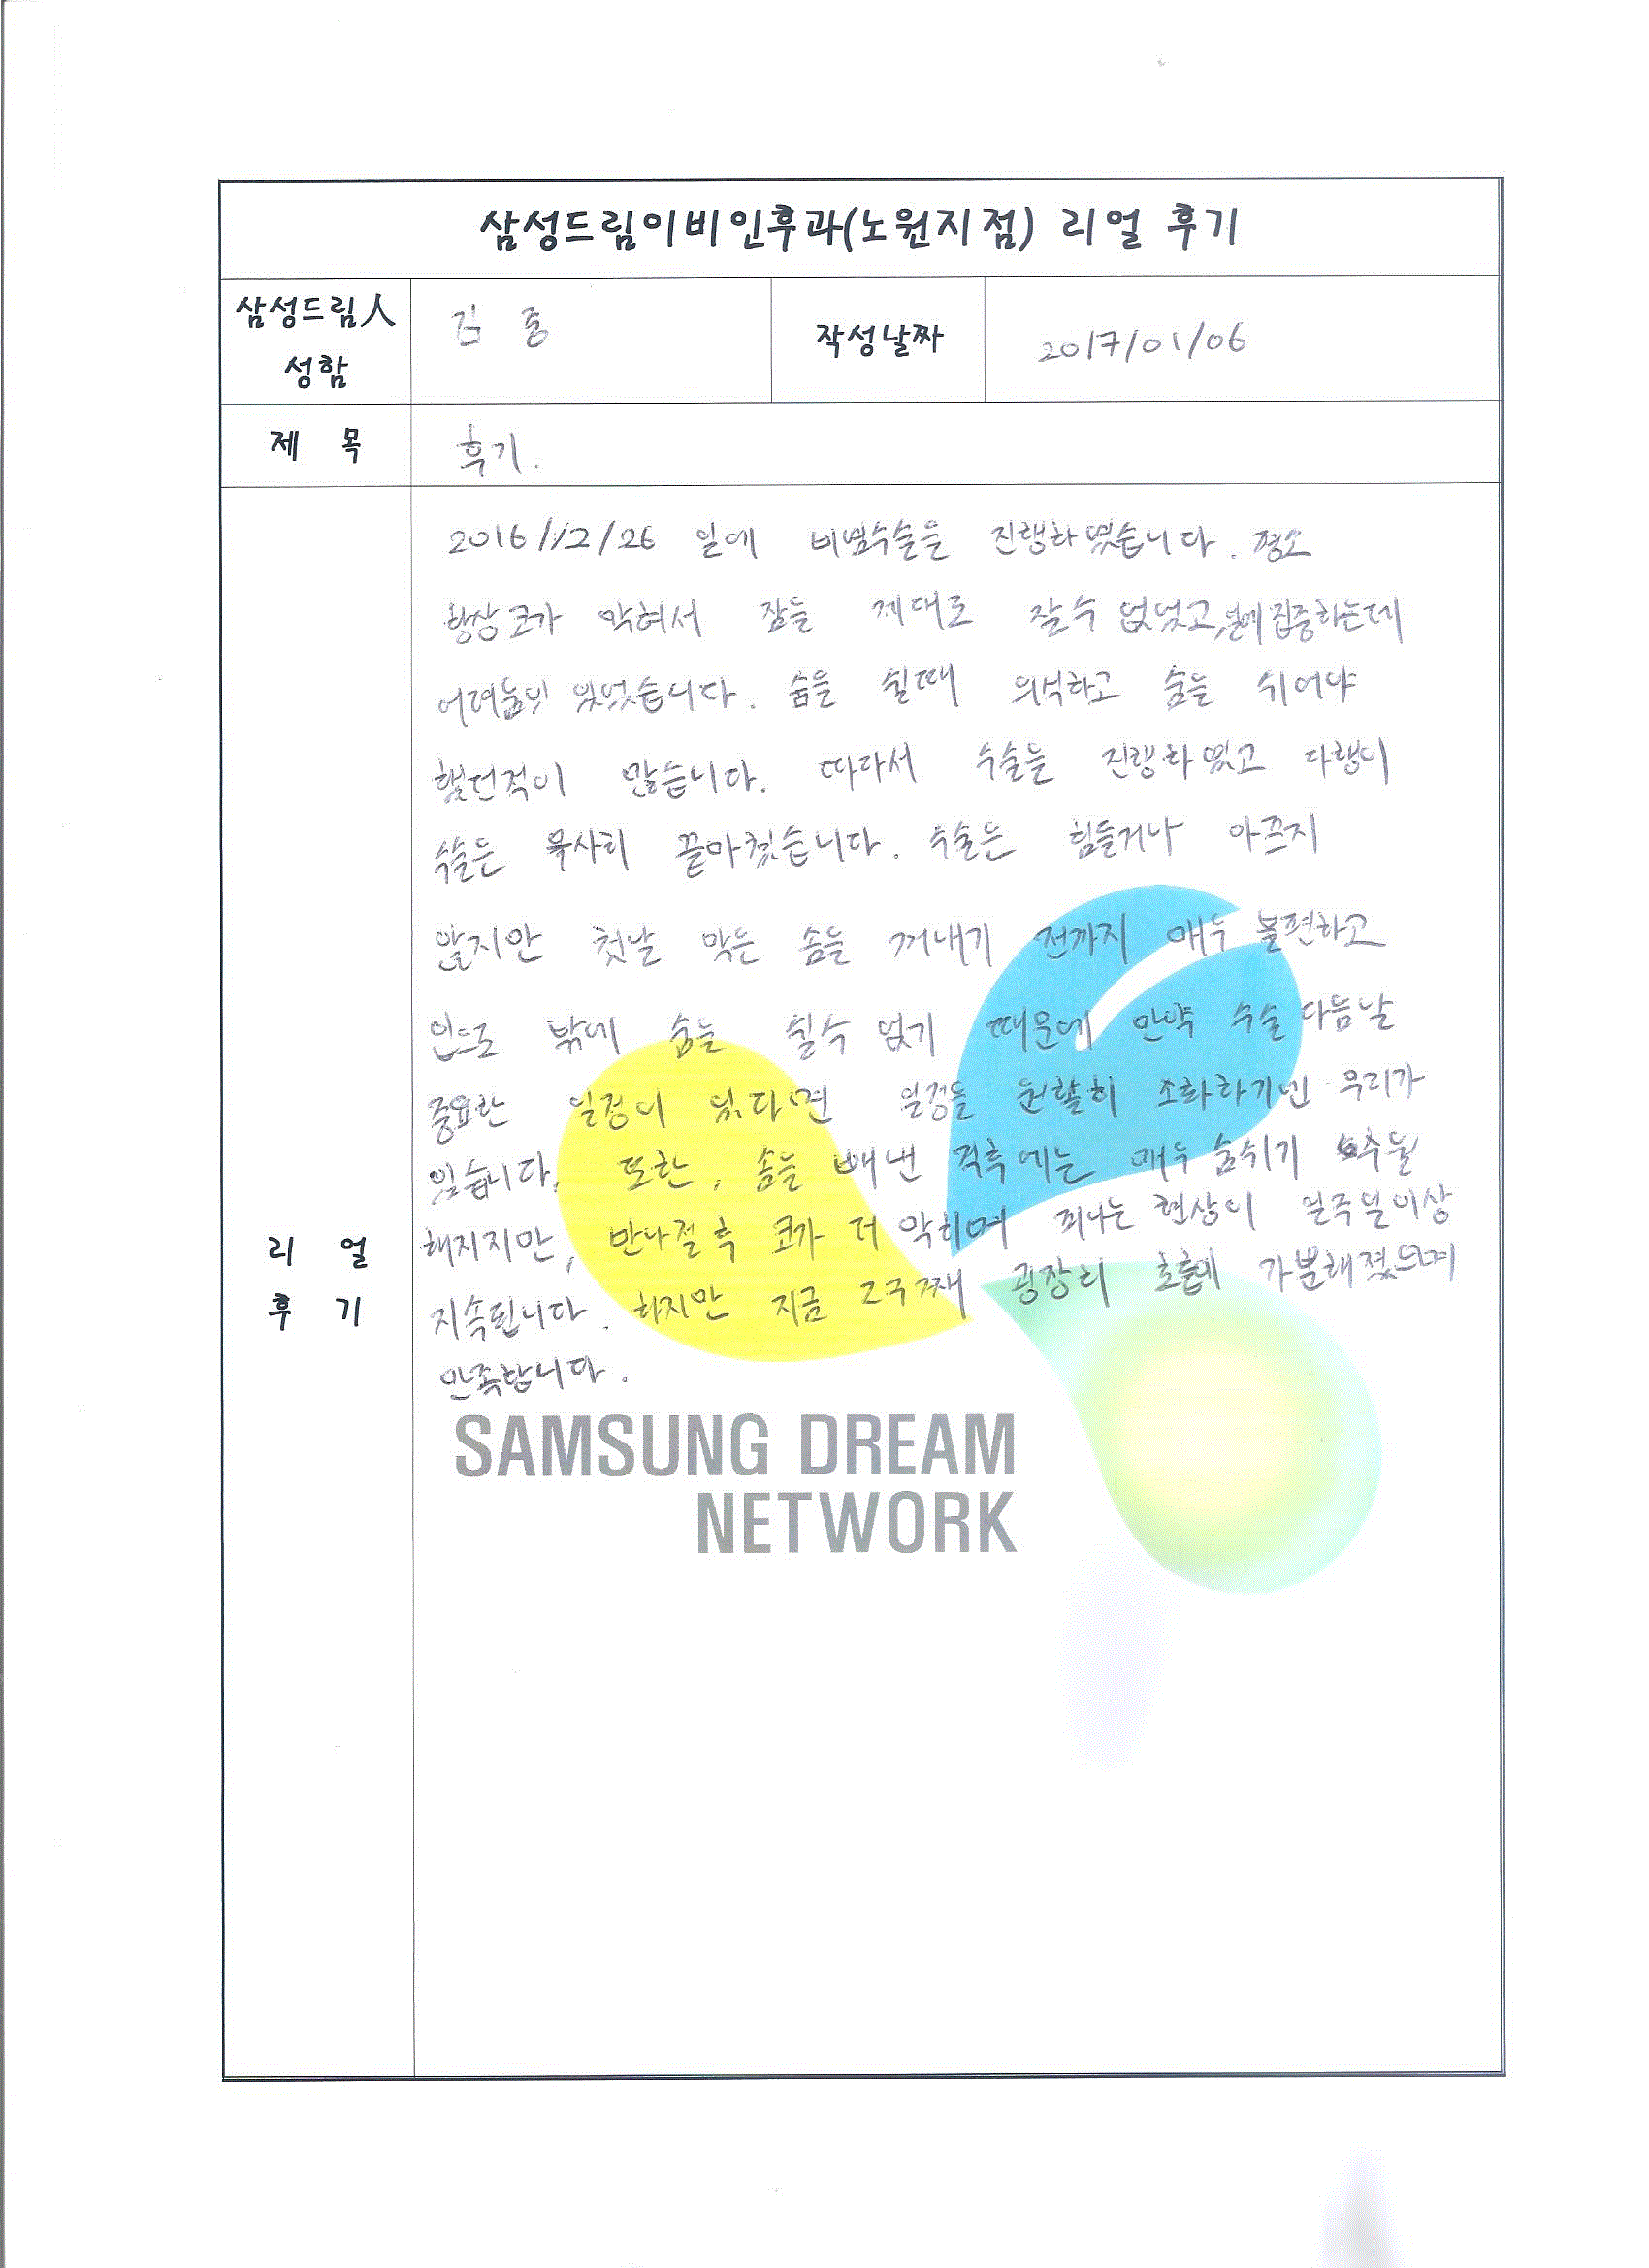 삼성드림이비인후과(노원지점) 리얼 후기
삼성드림人
성함
김 종
작성날짜
2017/01/06
제 목
후기.
2016/12/26 일에 비염수술을 진행하였습니다. 평소
항상 코가 막혀서 잠을 제대로 잘수 없었고, 일에 집중하는데
어려움이 있었습니다. 숨을 쉴때 의식하고 숨을 쉬어야
했던적이 많습니다. 따라서 수술을 진행하였고 다행이
수술은 무사히 끝마쳤습니다. 수술은 힘들거나 아프지
않지만 첫날 막은 솜을 꺼내기 전까지 매우 불편하고
입으로 밖에 숨을 쉴수 없기 때문에 만약 수술 다음날
중요한 일정이 있다면 일정을 원활히 소화하기엔 무리가
있습니다. 또한, 솜을 빼낸 직후에는 매우 숨쉬기 수월
해지지만, 반나절 후 코가 더 막히며 피나는 현상이 일주일이상
지속됩니다. 하지만 지금 2주째 굉장히 호흡이 가분해졌으며
만족합니다.
리 얼
후 기
SAMSUNG DREAM
NETWORK